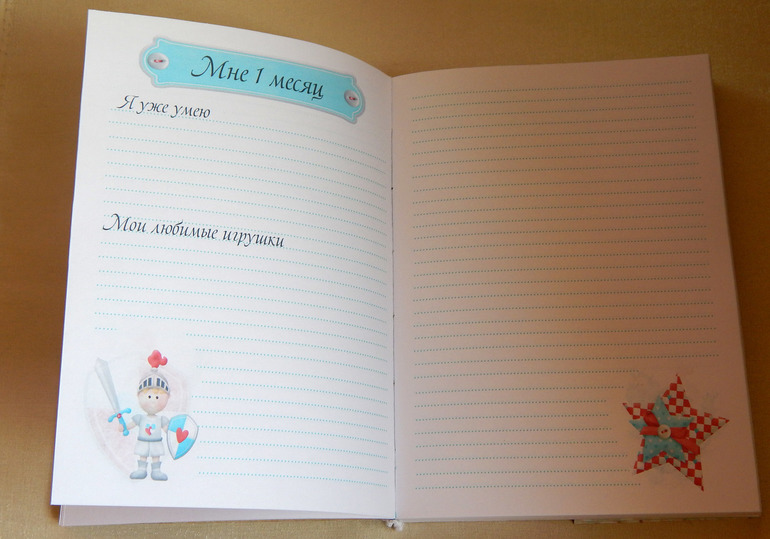 Мне 1 месяц
Я уже умею
Мои любимые игрушки